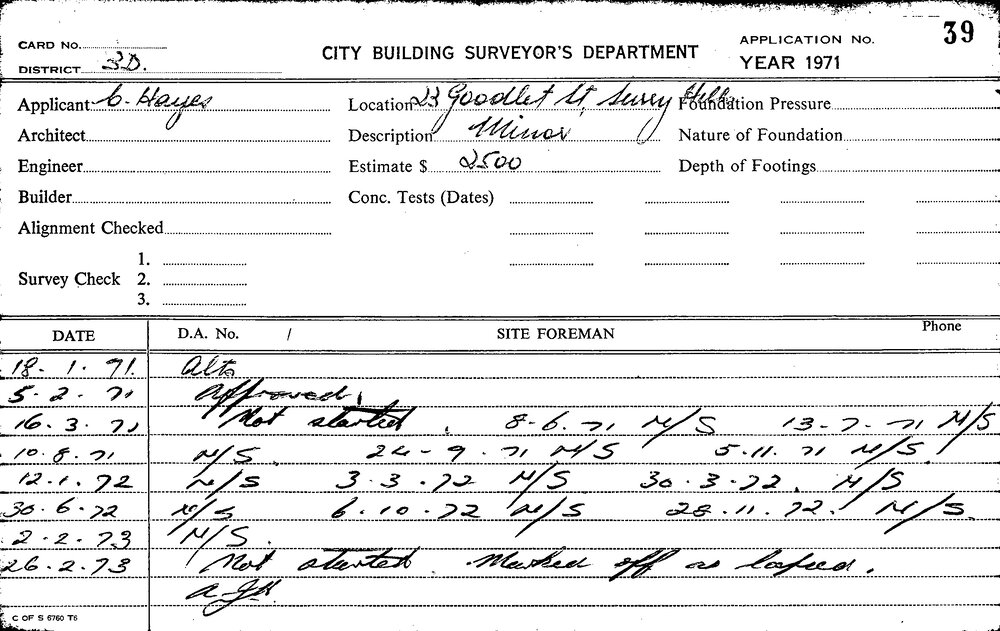 CARD No.
DISTRICT 3D.
CITY BUILDING SURVEYOR'S DEPARTMENT
APPLICATION No. 39
YEAR 1971
Applicant C. Hayes
Location 23 Goodlet St, Surry Hills
Foundation Pressure
Architect
Description Minor
Nature of Foundation
Engineer
Estimate $ 2500
Depth of Footings
Builder
Conc. Tests (Dates)
Alignment Checked
Survey Check 1.
2.
3.
DATE D.A. No. / SITE FOREMAN Phone
18. 1. 71. Alts
5. 2. 71 Approved.
16. 3. 71 Not started. 8-6.71 N/S 13-7-71 N/S
10.8.71 N/S. 24-9.71 N/S 5.11.71 N/S.
12.1.72 N/S 3.3.72 N/S 30.3.72. N/S
30.6.72 N/S 6.10.72 N/S 28.11.72. N/S.
2-2.73 N/S.
26.2.73 Not started. Marked off as lapsed.
C OF S 6760 T6